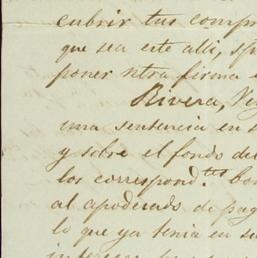 cubrir tus compr
que sea este alli, 
poner ntra firma
Rivera, Ve
una sentencia en s
y sobre el fondo de
los correspond.tes bon
al apoderado de pag
lo que ya tenia en su